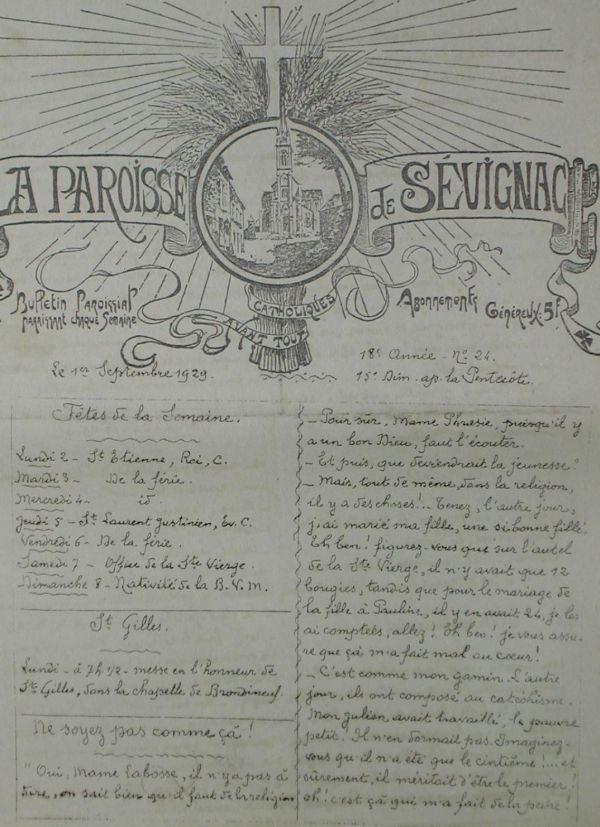 LA PAROISSE de SÉVIGNAC
Bulletin Paroissial
paraissant chaque Semaine
CATHOLIQUES
AVANT TOUT
Abonnements Généreux: 5f
Le 1er Septembre 1929.
18e Année - No 24.
15e Dim. ap. la Pentecôte.
Fêtes de la Semaine.
Lundi 2 - St Etienne, Roi, C.
Mardi 3 - De la férie.
Mercredi 4 - id.
Jeudi 5 - St Laurent Justinien, Ev. C.
Vendredi 6 - De la férie.
Samedi 7 - Office de la Ste Vierge.
Dimanche 8 - Nativité de la B. V. M.
St Gilles.
Lundi - à 7h 1/2 - messe en l'honneur de
St Gilles, dans la chapelle de Brondineuf.
Ne soyez pas comme çà !
" Oui, Mame Labosse, il n'y a pas à
dire, on sait bien qu'il faut de la religion
- Pour sûr, Mame Phrasie, puisqu'il y
a un bon Dieu, faut l'écouter.
- Et puis, que deviendrait la jeunesse ?
- Mais, tout de même, dans la religion,
il y a des choses !.. Tenez, l'autre jour,
j'ai marié ma fille, une si bonne fille.
Eh ben ! figurez-vous que sur l'autel
de la Ste Vierge, il n'y avait que 12
bougies, tandis que pour le mariage de
la fille à Pauline, il y en avait 24, je les
ai comptées, allez ! Eh ben ! je vous assu-
re que çà m'a fait mal au cœur !
- C'est comme mon gamin. L'autre
jour, ils ont composé au catéchisme.
Mon Julien avait travaillé, le pauvre
petit ! Il n'en dormait pas. Imaginez-
vous qu'il n'a été que le cintième !... et
sûrement, il méritait d'être le premier !
oh ! c'est çà qui m'a fait de la peine !